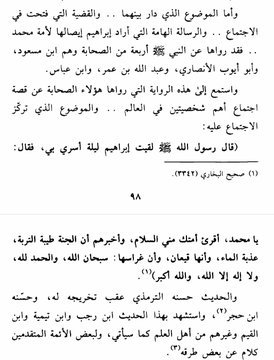 وأما الموضوع الذي دار بينهما .. والقضية التي فتحت في
الاجتماع .. والرسالة الهامة التي أراد إبراهيم إيصالها لأمة محمد
.. فقد رواها عن النبي ﷺ أربعة من الصحابة وهم ابن مسعود،
وأبو أيوب الأنصاري، وعبد الله بن عمر، وابن عباس.
واستمع إلىّ هذه الرواية التي رواها هؤلاء الصحابة عن قصة
اجتماع أهم شخصيتين في العالم .. والموضوع الذي تركّز
الاجتماع عليه:
(قال رسول الله ﷺ لقيت إبراهيم ليلة أسري بي، فقال:
(١) صحيح البخاري (٣٣٤٢).
٩٨
يا محمد، أقرئ أمتك مني السلام، وأخبرهم أن الجنة طيبة التربة،
عذبة الماء، وأنها قيعان، وأن غراسها: سبحان الله، والحمد لله،
ولا إله إلا الله، والله أكبر)(١).
والحديث حسنه الترمذي عقب تخريجه له، وحسّنه
ابن حجر(٢)، واستشهد بهذا الحديث ابن رجب وابن تيمية وابن
القيم وغيرهم من أهل العلم كما سيأتي، ولبعض الأئمة المتقدمين
كلام عن بعض طرقه(٣).